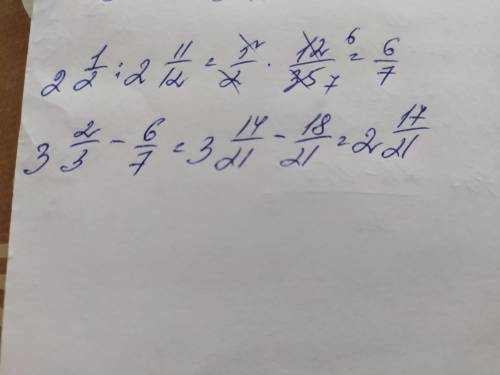 2 1/2 : 2 11/12 = 5/2 · 12/35 = 6/7
3 2/3 - 6/7 = 3 14/21 - 18/21 = 2 17/21